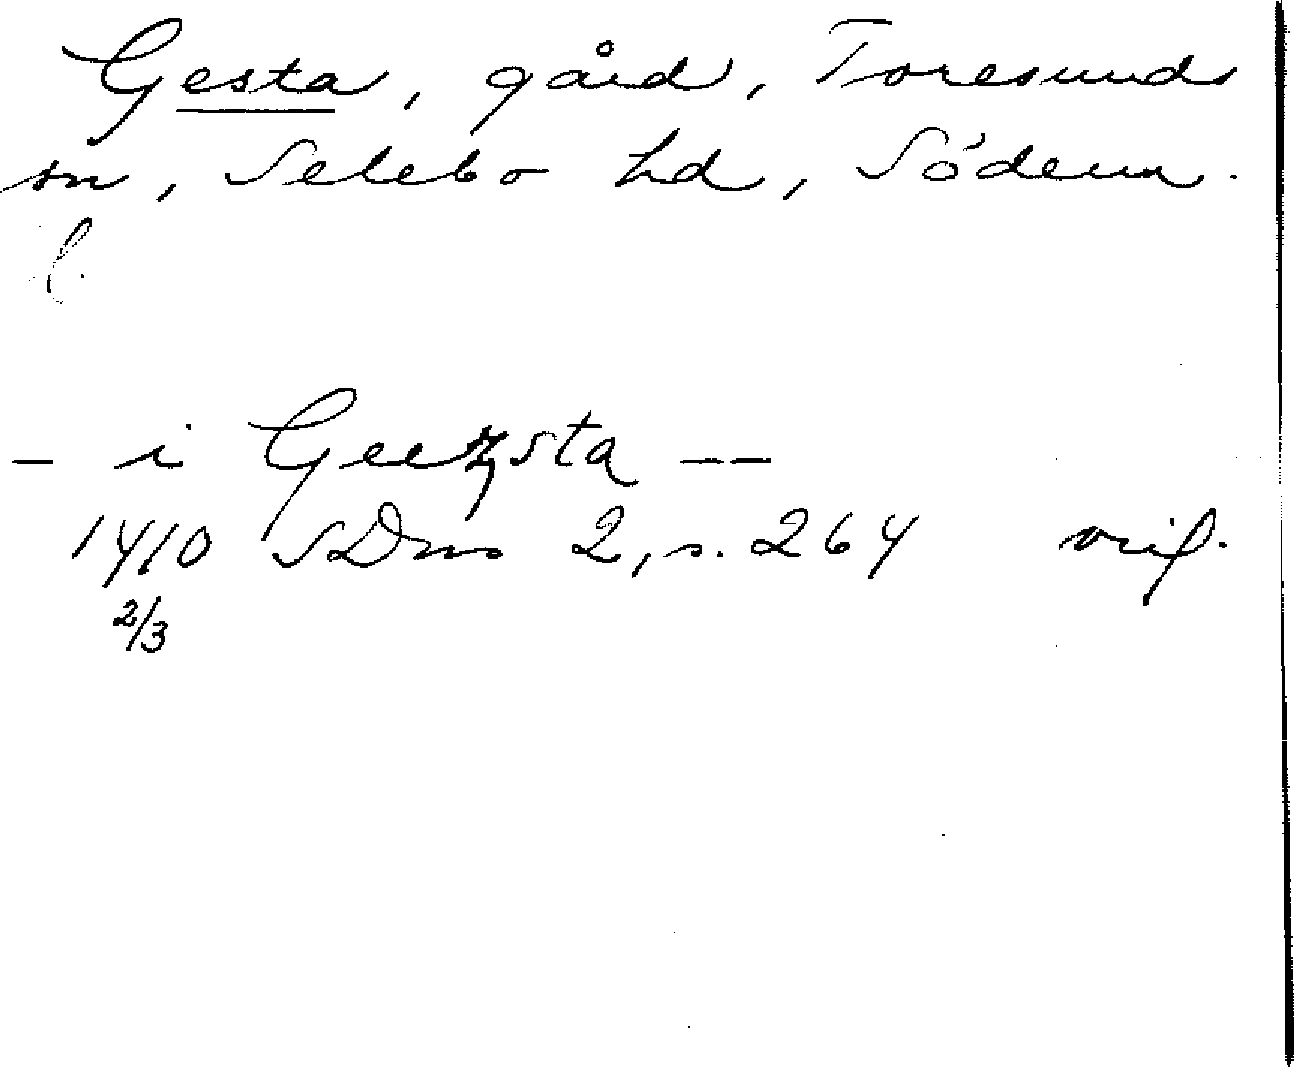 Gesta, gård, Toresunds
sn, Selebo hd, Söderm.
l.
- i Geezsta --
1410 SDns 2, s. 264 orig.
2/3